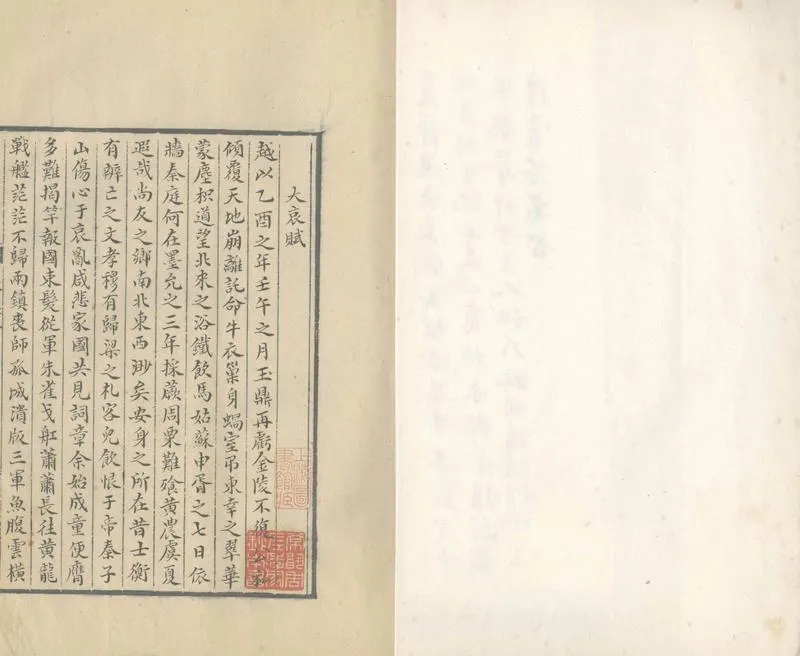 大哀賦
越以乙酉之年壬午之月玉鼎再虧金陵不復
傾覆天地崩離託命牛衣巢身蝸室弔東幸之翠華
蒙塵枳道望北來之浴鐵飲馬姑蘇申胥之七日依
牆秦庭何在墨允之三年採蕨周粟難飱黃農虞夏
遐哉尚友之鄉南北東西渺矣安身之所在昔士衡
有辨亡之文孝穆有歸梁之札客兒飲恨于帝秦子
山傷心于哀亂咸悲家國共見詞章余始成童便膺
多難揭竿報國束髮從軍朱雀戈舡蕭蕭長往黃龍
戰艦茫茫不歸兩鎮喪師孤城潰版三軍魚腹雲橫
上海圖
書館藏